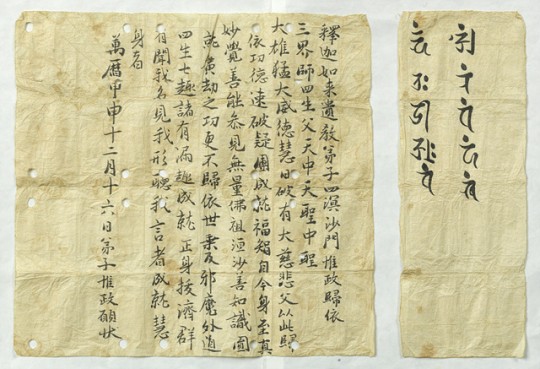 釋迦如来遺教弟子四溟沙門惟政歸依
三界師四生父天中天聖中聖
大雄猛大威德慧日破有大慈悲父以此歸
依功德速破疑團成就福智自今身至真
妙覺善能叅見無量佛祖洹沙善知識圓
就廣劫之功更不歸依世衆及邪魔外道
四生七趣諸有漏趣成就正身拔濟群
有聞我名見我形聽我言者成就慧
身者
萬曆甲申十二月十六日弟子惟政願狀